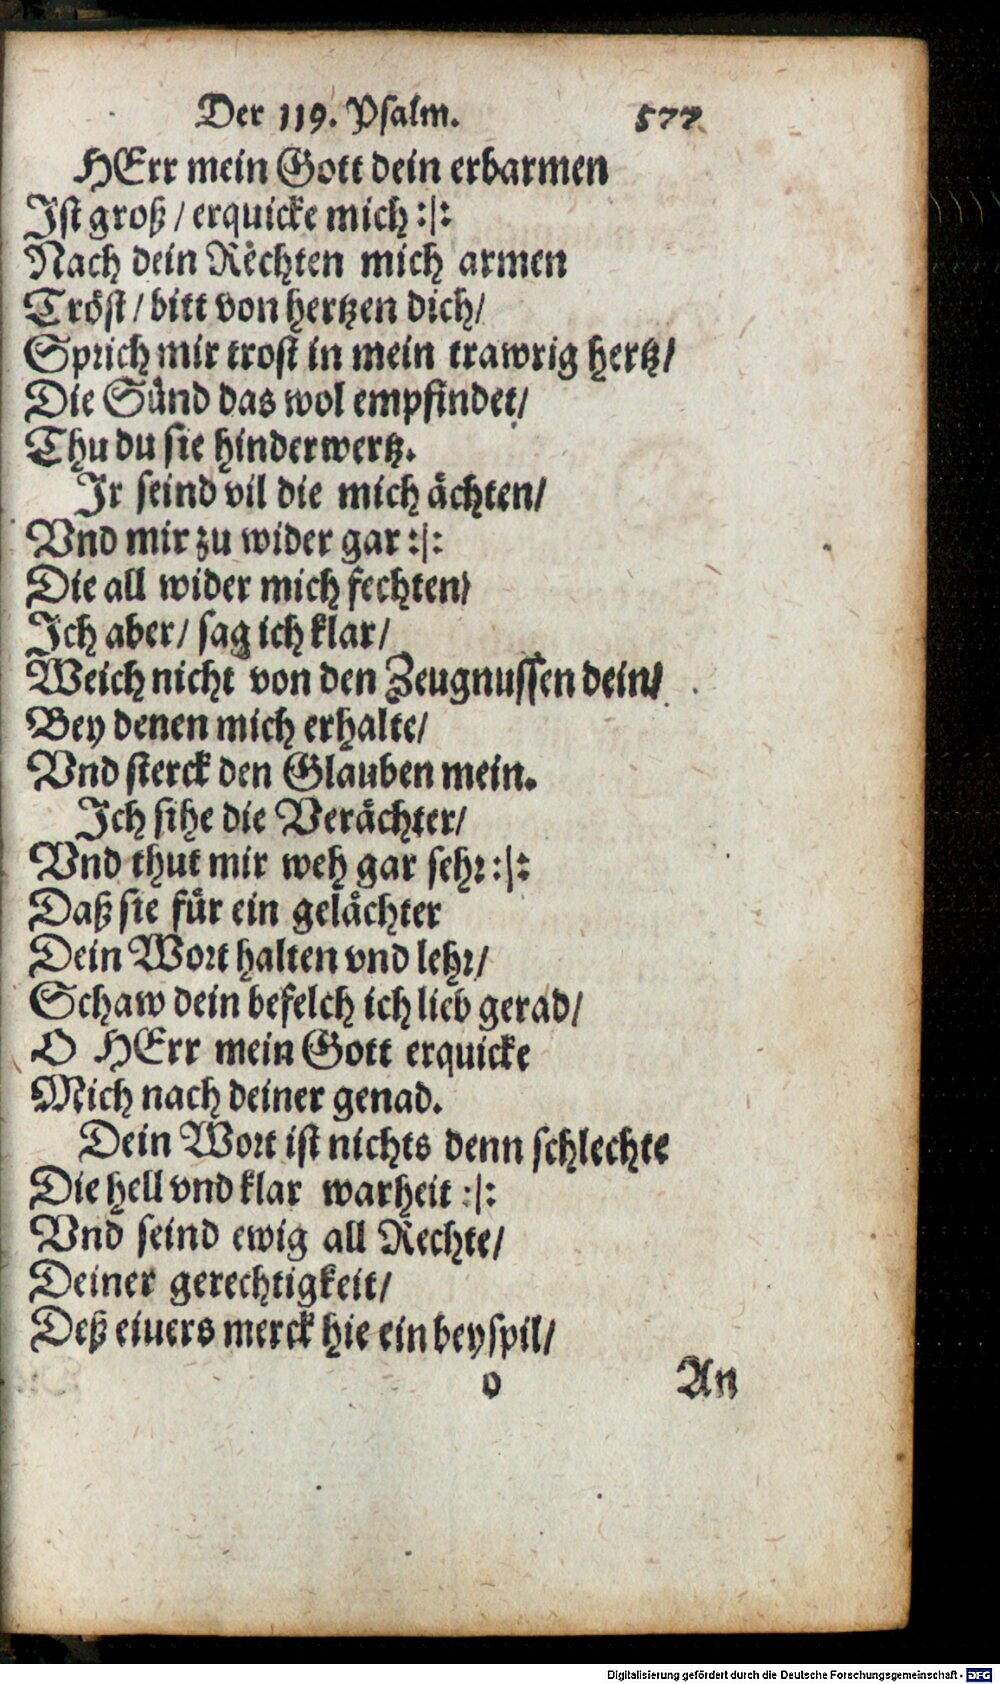 Der 119. Psalm. 577.
HErr mein Gott dein erbarmen
Ist groß / erquicke mich :|:
Nach dein Rechten mich armen
Tröst / bitt von hertzen dich /
Sprich mir trost in mein trawrig hertz /
Die Sünd das wol empfindet /
Thu du sie hinderwertz.
Ir seind vil die mich ächten /
Vnd mir zu wider gar :|:
Die all wider mich fechten /
Ich aber / sag ich klar /
Weich nicht von den Zeugnussen dein /
Bey denen mich erhalte /
Vnd sterck den Glauben mein.
Ich sihe die Verächter /
Vnd thut mir weh gar sehr :|:
Daß sie für ein gelächter
Dein Wort halten vnd lehr /
Schaw dein befelch ich lieb gerad /
O HErr mein Gott erquicke
Mich nach deiner genad.
Dein Wort ist nichts denn schlechte
Die hell vnd klar warheit :|:
Vnd seind ewig all Rechte /
Deiner gerechtigkeit /
Deß eiuers merck hie ein beyspil /
o An
Digitalisierung gefördert durch die Deutsche Forschungsgemeinschaft - DFG